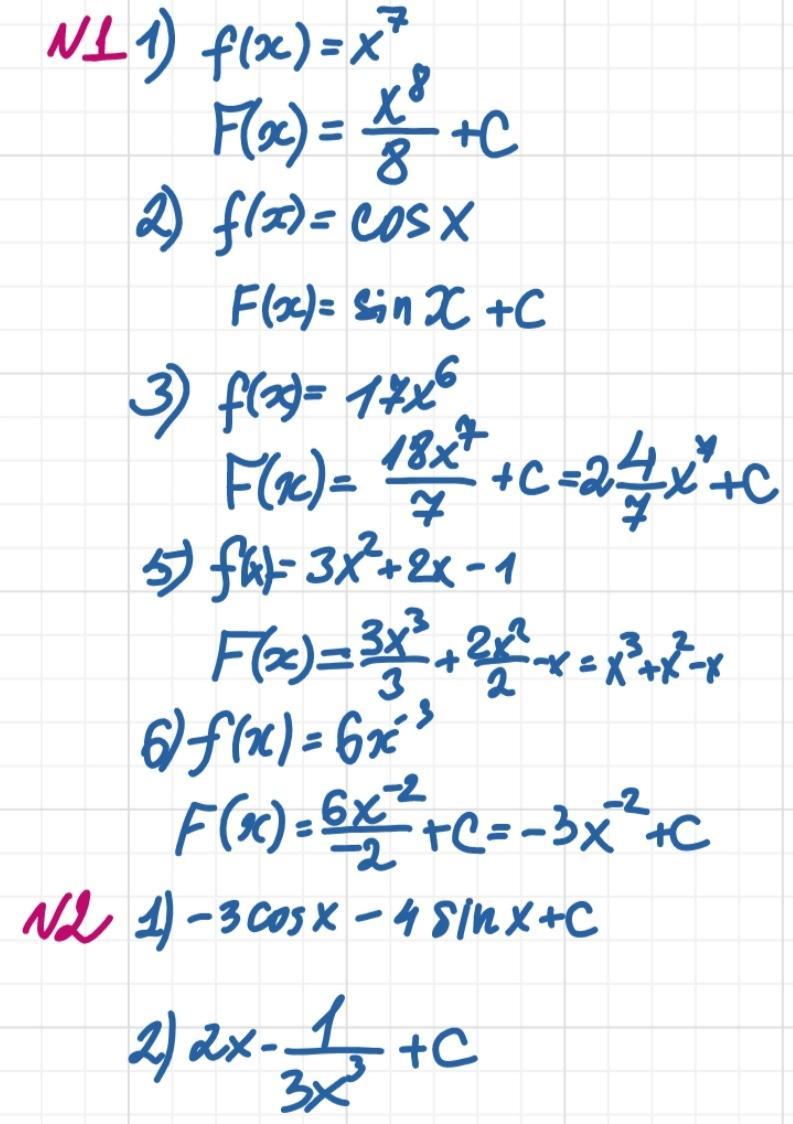 N1 1) f(x) = x⁷
F(x) = x⁸/8 + C
2) f(x) = cos x
F(x) = sin x + C
3) f(x) = 17x⁶
F(x) = 18x⁷/7 + C = 2 4/7 x⁷ + C
5) f(x) = 3x² + 2x - 1
F(x) = 3x³/3 + 2x²/2 - x = x³ + x² - x
6) f(x) = 6x⁻³
F(x) = 6x⁻²/-2 + C = -3x⁻² + C
N2 1) -3 cos x - 4 sin x + C
2) 2x - 1/3x³ + C